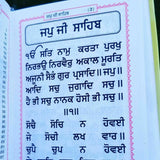 ਜਪੁ ਜੀ ਸਾਹਿਬ
ਜਪੁ ਜੀ ਸਾਹਿਬ
ੴ ਸਤਿ ਨਾਮੁ ਕਰਤਾ ਪੁਰਖੁ
ਨਿਰਭਉ ਨਿਰਵੈਰੁ ਅਕਾਲ ਮੂਰਤਿ
ਅਜੂਨੀ ਸੈਭੰ ਗੁਰ ਪ੍ਰਸਾਦਿ ॥ ਜਪੁ ॥
ਆਦਿ ਸਚੁ ਜੁਗਾਦਿ ਸਚੁ ॥
ਹੈ ਭੀ ਸਚੁ ਨਾਨਕ ਹੋਸੀ ਭੀ ਸਚੁ ॥
॥੧॥
ਸੋਚੈ ਸੋਚਿ ਨ ਹੋਵਈ
ਜੇ ਸੋਚੀ ਲਖ ਵਾਰ ॥
ਚੁਪੈ ਚੁਪ ਨ ਹੋਵਈ